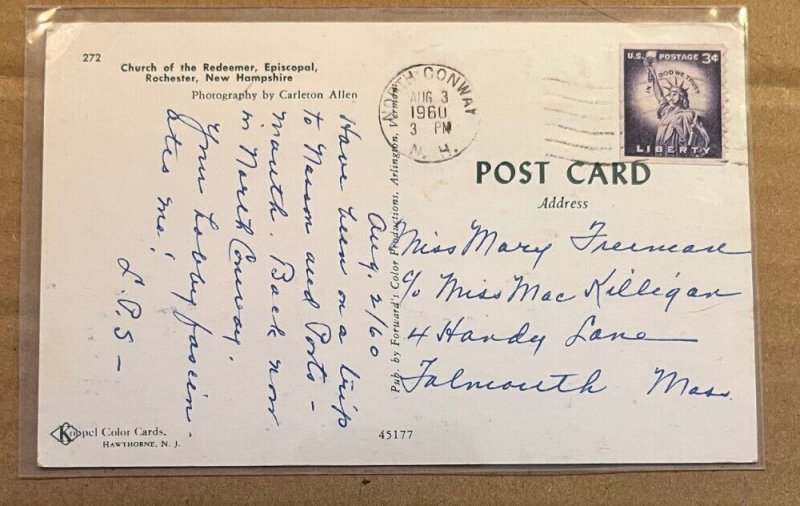 272
Church of the Redeemer, Episcopal,
Rochester, New Hampshire
Photography by Carleton Allen
Aug. 2/60
Have been on a trip
to Nason and Ports-
mouth. Back now
in North Conway.
Your hobby fascin-
ates me!
L.P.S-
Koppel Color Cards,
HAWTHORNE, N. J.
45177
Pub. by Forward's Color Productions, Arlington, Vermont
NORTH CONWAY
AUG 3
1960
3 PM
N. H.
U.S. POSTAGE 3¢
IN GOD WE TRUST
LIBERTY
POST CARD
Address
Miss Mary Freeman
c/o Miss MacKilligan
4 Handy Lane
Falmouth Mass.